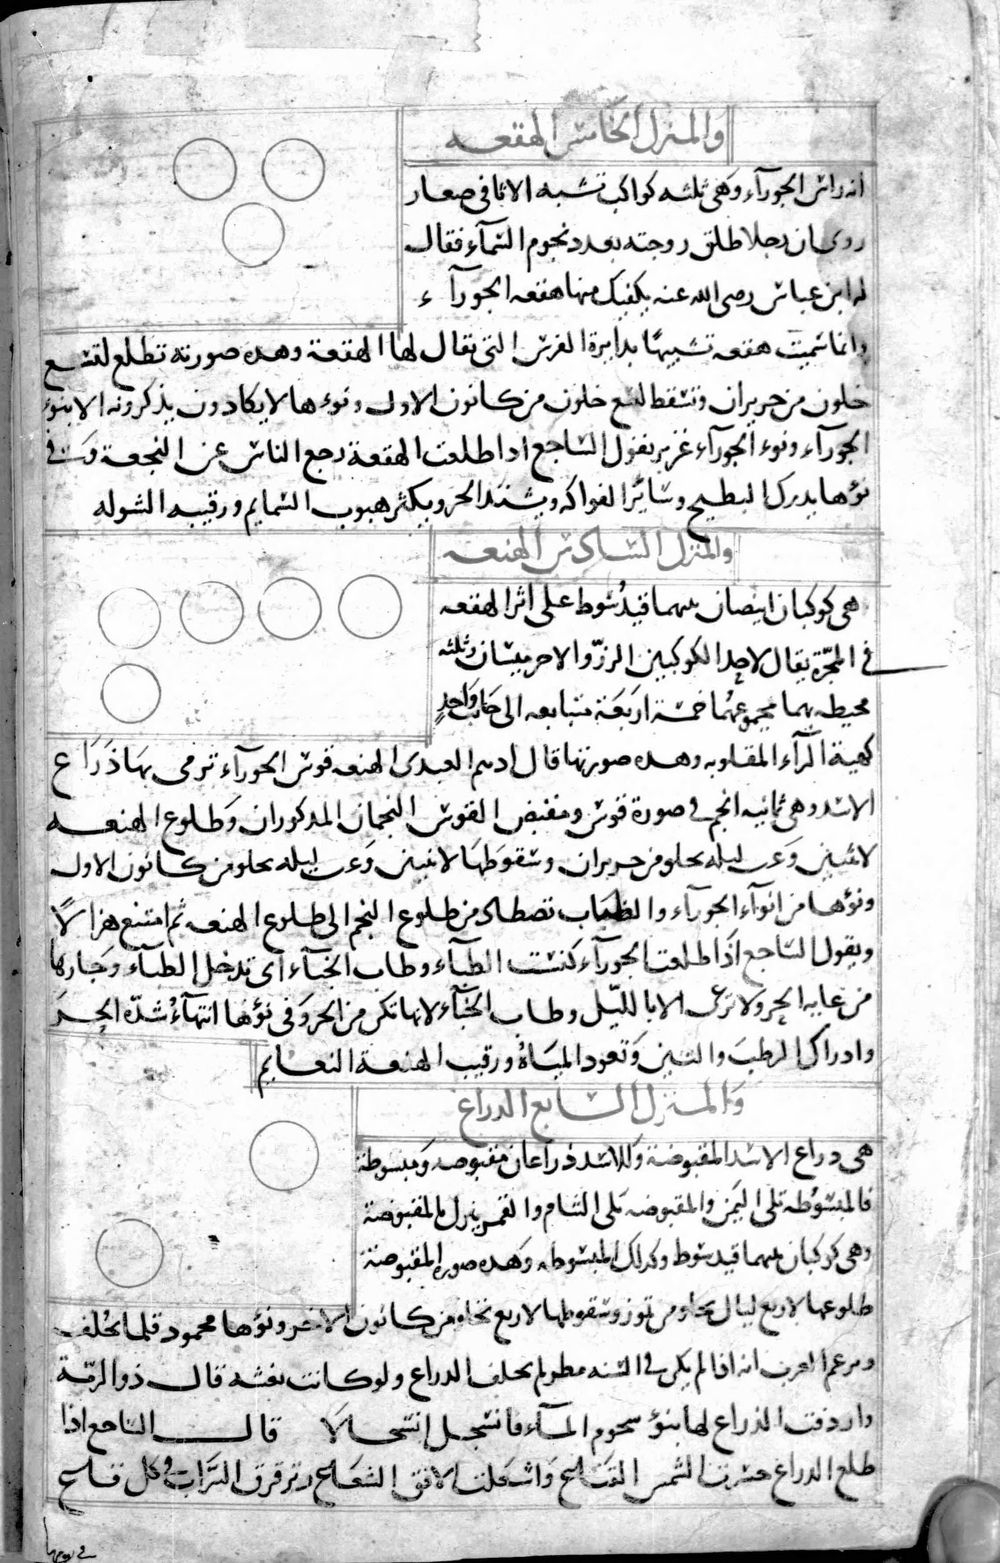 والمنزل الخامس الهقعه
انه راس الجوزآء وهى ثلثه كواكب تشبه الاثافى صعار
روى ان رجلا طلق زوجته بعدد نجوم السمآء فقال
له ابن عباس رضى الله عنه يكفيك منها هقعه الجوزآء
وانما سميت هقعه تشبيها بدايرة الفرس التى يقال لها الهقعة وهده صورته تطلع لتسع
خلون من حزيران وتسقط لتسع خلون من كانون الاول ونوءها لا يكادون يذكرونه الا بنوء
الجوزآء ونوء الجوزآء غزير يقول الساجع ادا طلعت الهقعة رجع الناس عن النجعة وفى
نوءها يدرك البطيخ وسائر الفواكه ويشتد الحر ويكثر هبوب السمايم ورقيبه الشوله
والمنزل السادس الهنعه
هى كوكبان ابيضان بينهما قيد سوط على اثر الهقعه
فى المجرة يقال لاحد الكوكبين الزر والاخر ميسان وثلثه
محيطه بهما مجموعهما خمسة اربعة متتابعه الى جانب واحد
كهية الرآء المقلوبه وهده صورتها قال ادهم العبدى الهنعه قوس الجوزآء ترمى بها ذراع
الاسد وهى ثمانيه انجم فى صورة قوس ومقبض القوس النجمان المدكوران وطلوع الهنعه
لاثنين وعشرين ليله تخلو من حزيران وسقوطها لاثنين وعشرين ليله تخلو من كانون الاول
ونوءها من انوآء الجوزآء والظباب تصطاد من طلوع النجم الى طلوع الهنعه ثم امتنع هزالا
ويقول الساجع اذا طلعت الجوزآء كنست الظبآء وطاب الخبآء اى تدخل الظبآء وجارها
من غايه الحر ولا ترعى الا بالليل وطاب الخبآء لانها تكن من الحر وفى نوءها انتهآء شدة الحر
وادراك الرطب والتين وتعود المياه ورقيب الهنعة النعايم
والمنزل السابع الدراع
هى دراع الاسد المقبوضة وللاسد ذراعان مقبوضه ومبسوطة
فالمبسوطه تلى اليمن والمقبوضه تلى الشام والقمر ينزل بالمقبوضة
وهى كوكبان بينهما قيد سوط وكدلك المبسوطه وهده صوره المقبوضة
طلوعها لاربع ليال تخلو من تموز وسقوطها لاربع تخلو من كانون الاخر ونوءها محمود قلما يخلف
وتزعم العرب انه اذا لم يكن فى السنه مطر لم يخلف الدراع ولو كانت بغشه قال ذو الرمة
واردفت الذراع لها بنوء سجوم المآء فانسجل انسحالا قال الساجع اذا
طلع الدراع حسرت الشمس القناع واشعلت الافق الشعاع وترقرق السراب فى كل قاع
فى نوءها